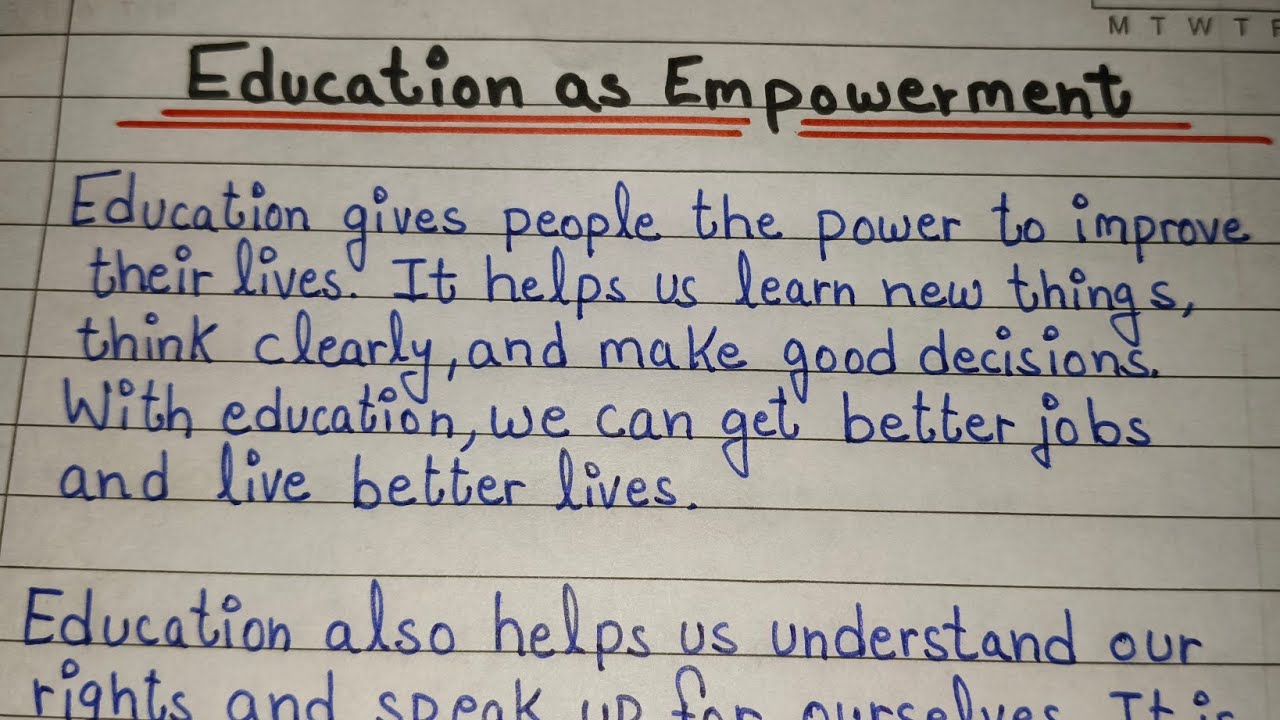 M T W T F
Education as Empowerment
Education gives people the power to improve
their lives. It helps us learn new things,
think clearly, and make good decisions.
With education, we can get better jobs
and live better lives.
Education also helps us understand our
rights and speak up for ourselves.